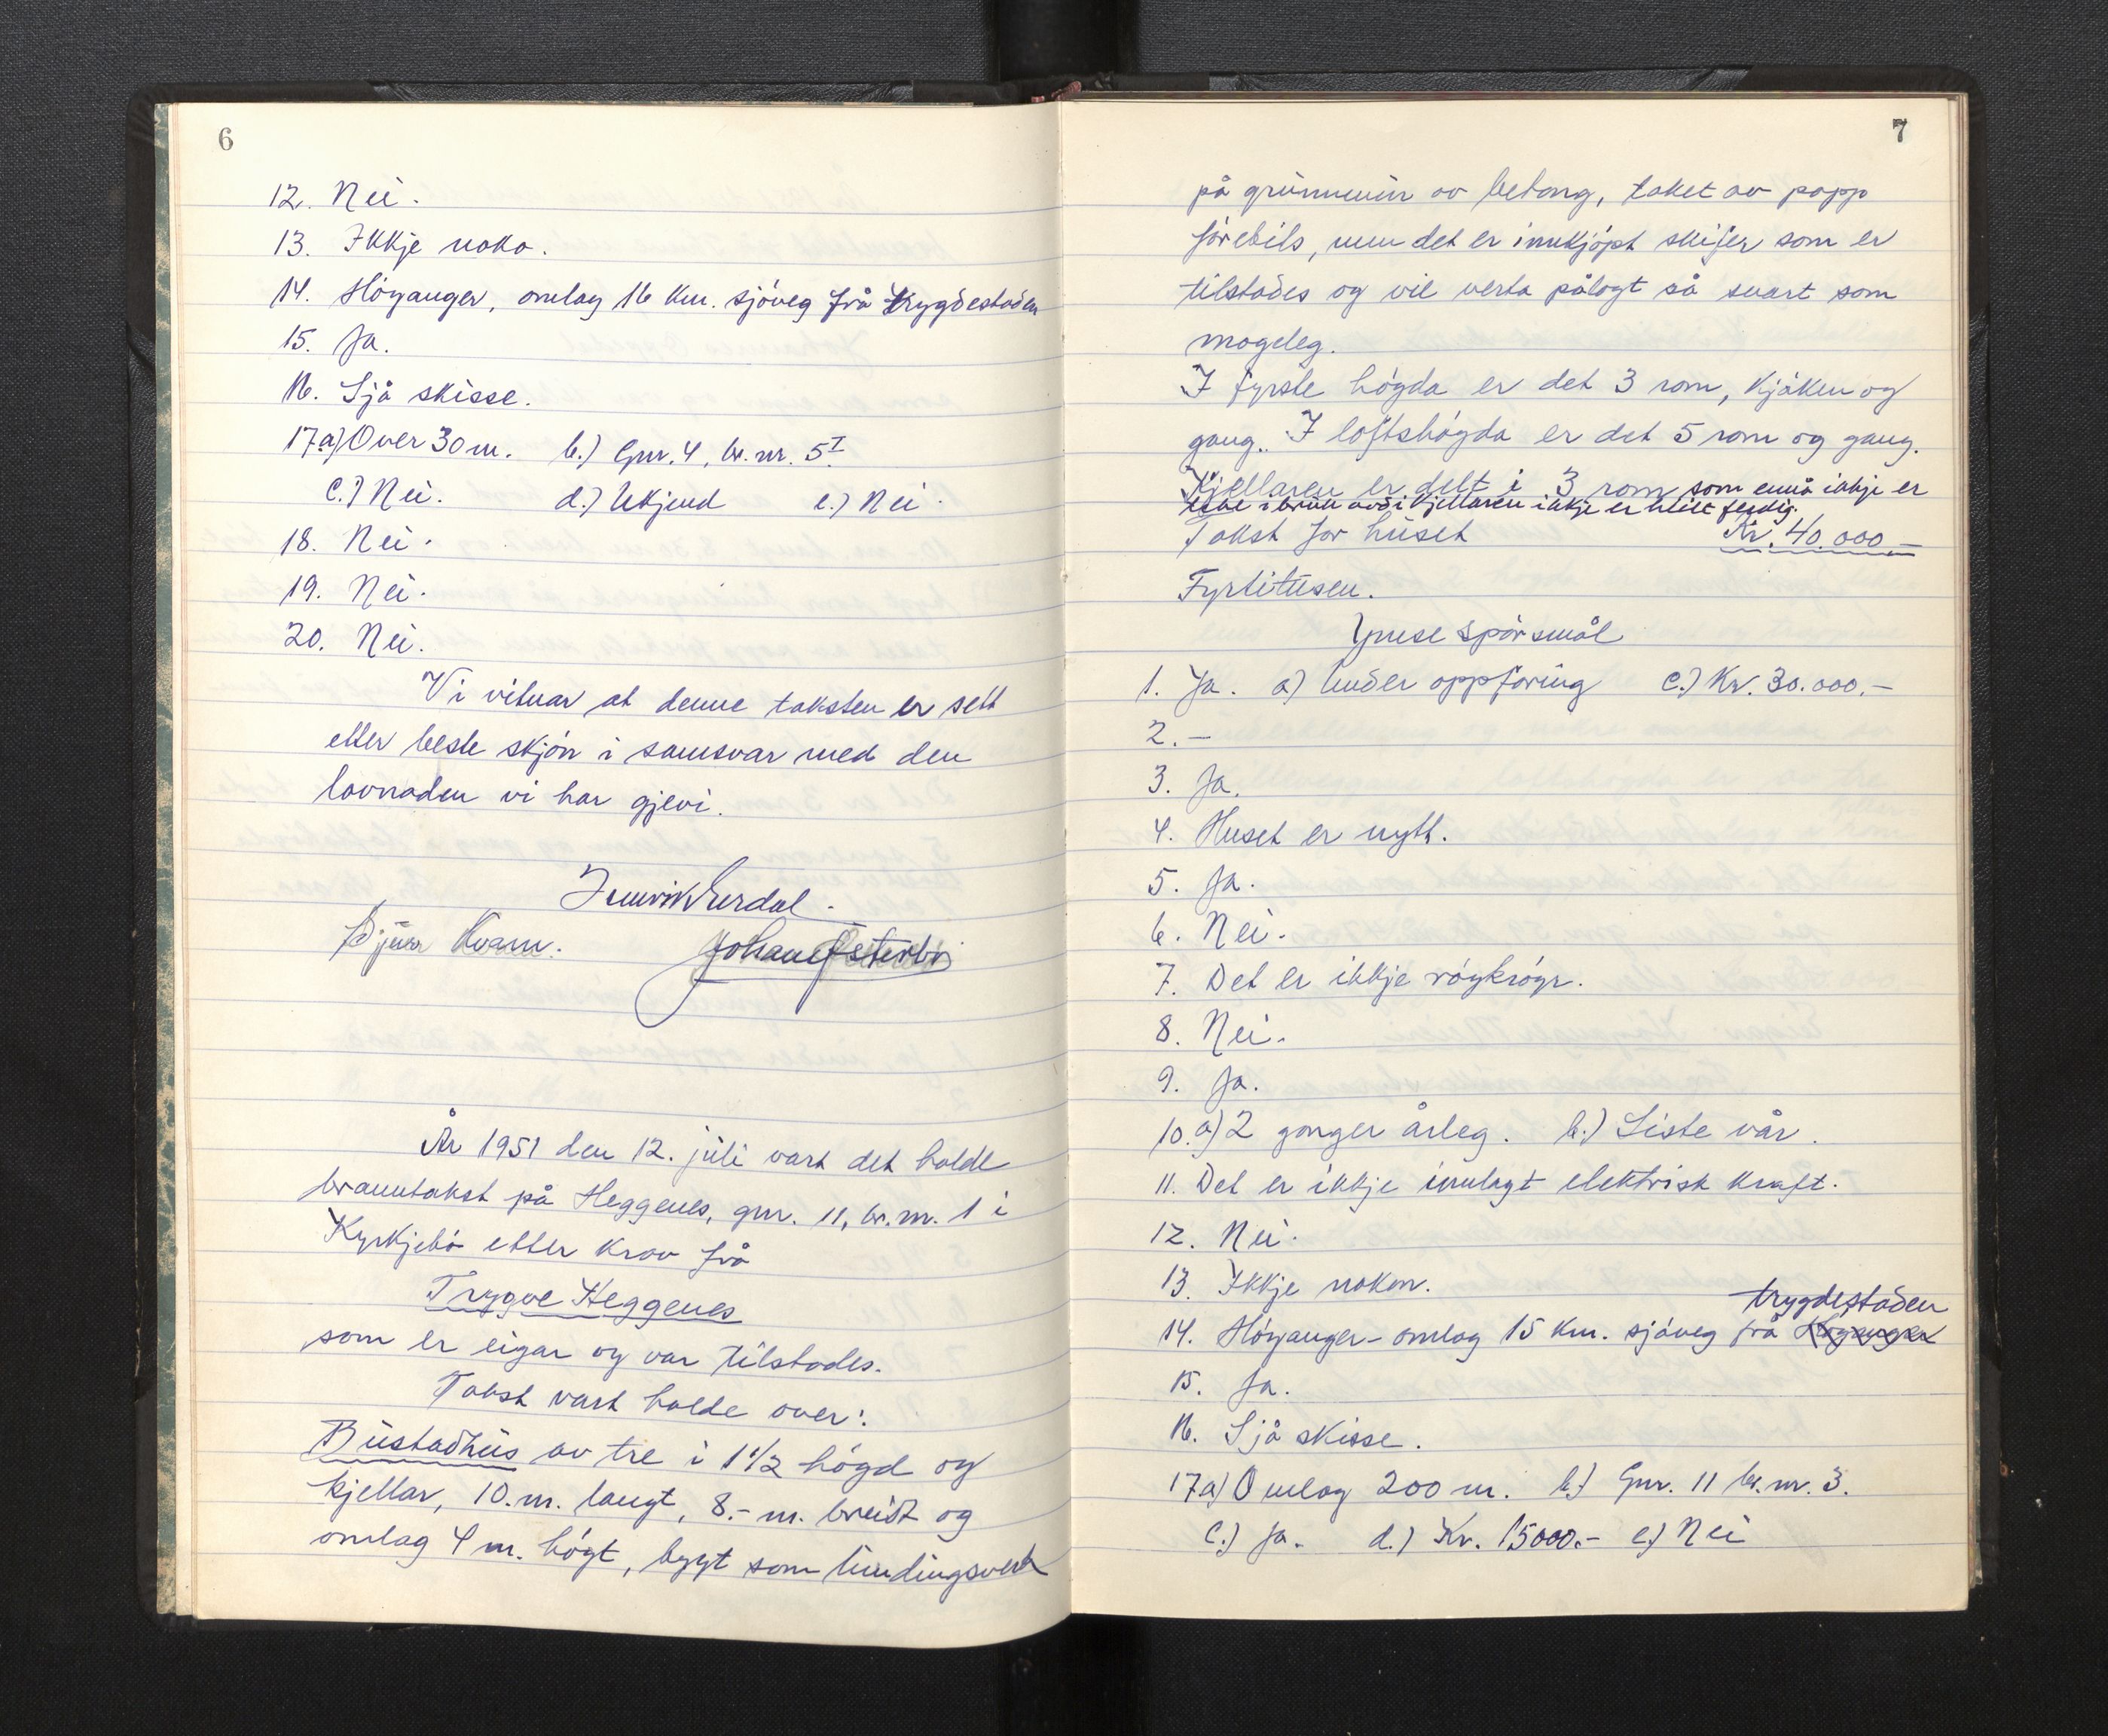 6
12. Nei.
13. Ikkje noko.
14. Höyanger, omlag 16 km. sjöveg frå trygdestaden
15. Ja.
16. Sjå skisse.
17 a) Over 30 m. b.) Gnr. 4, br. nr. 5 I.
c.) Nei. d.) Ukjend e.) Nei.
18. Nei.
19. Nei.
20. Nei.
Vi vitnar at denne taksten er sett
etter beste skjön i samsvar med den
lovnaden vi har gjevi.
Kvam. Johan Østerbö
År 1951 den 12. juli vart det halde
branntakst på Heggenes, gnr. 11, br. nr. 1 i
Kyrkjebö etter krav frå
Trygve Heggenes
som er eigar og var tilstades.
Takst vart halde over:
Bustadhus av tre i 1 1/2 högd og
kjellar, 10. m. langt, 8.- m. breidt og
omlag 4 m. högt, bygt som bindingsverk
7
på grunnmur av betong, taket av papp
förebils, men det er innkjöpt skifer som er
tilstades og vil verta pålagt så snart som
mogeleg.
I fyrste högda er det 3 rom, kjöken og
gang. I loftshögda er det 5 rom og gang.
Kjellaren er delt i 3 rom som ennå ikkje er
i bruk avdi kjellaren ikkje er heilt ferdig.
Takst for huset Kr. 40.000.-
Fyrtitusen.
Ymse spörsmål
1. Ja. a) Under oppföring c.) Kr. 30.000.-
2. -
3. Ja.
4. Huset er nytt.
5. Ja.
6. Nei.
7. Det er ikkje röykröyr.
8. Nei.
9. Ja.
10. a) 2 gonger årleg. b.) Siste vår.
11. Det er ikkje innlagt elektrisk kraft.
12. Nei.
13. Ikkje nokon.
trygdestaden
14. Höyanger - omlag 15 km. sjöveg frå Höyanger
15. Ja.
16. Sjå skisse.
17 a) Omlag 200 m. b.) Gnr. 11 br. nr. 3.
c.) Ja. d.) Kr. 15000.- e.) Nei